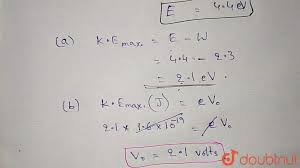 E = 4.4 eV
(a) K.E max. = E - W
= 4.4 - 2.3
= 2.1 eV.
(b) K.E max. (J) = e V₀
2.1 × 1.6 × 10⁻¹⁹ = e V₀
V₀ = 2.1 volts
doubtnut